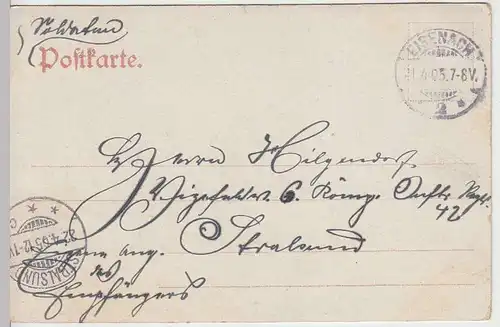 Soldaten
Postkarte.
EISENACH
1.4.05.7-8V.
2
Herrn Hilgendorf
Vizefeldw. 6. Komp. Inftr. Regt.
42
Stralsund
STRALSUND
2.4.05.12-1V.
eigene Ang.
des
Empfängers